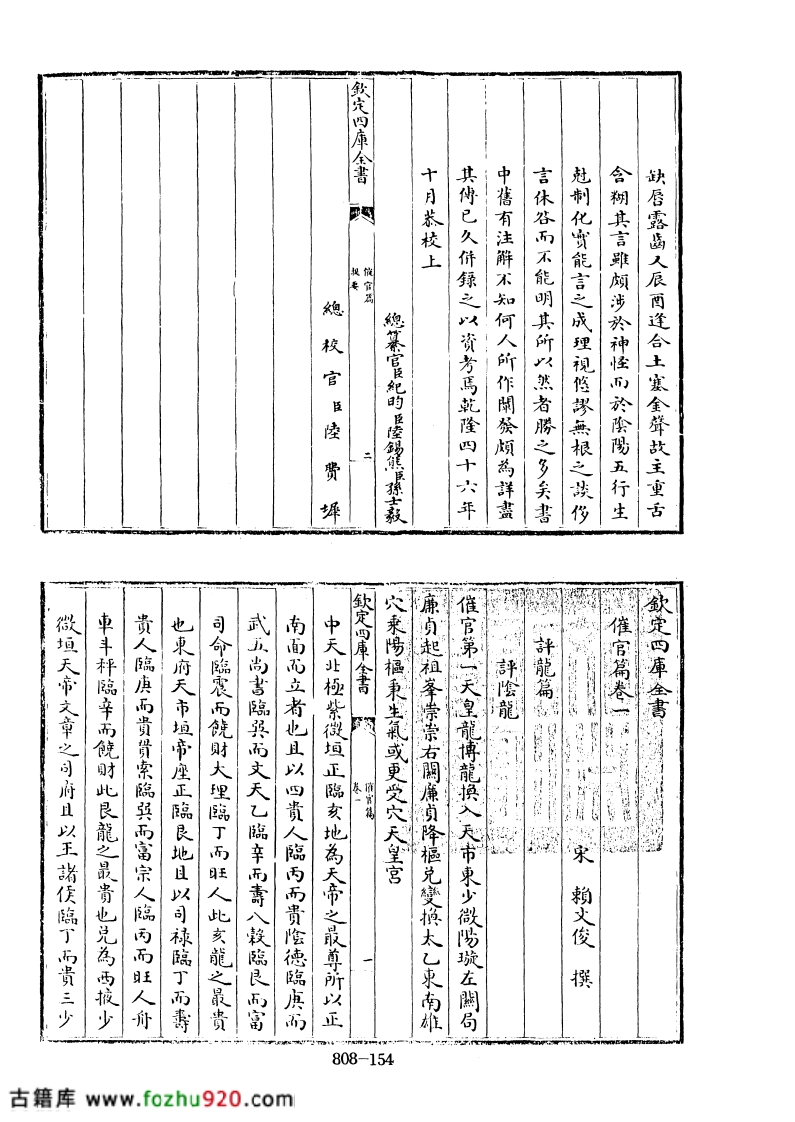 缺唇露齒又辰酉逢合土塞金聲故主重舌
含糊其言雖頗涉於神怪而於陰陽五行生
尅制化實能言之成理視悠謬無根之談侈
言休咎而不能明其所以然者勝之多矣書
中舊有注解不知何人所作闡發頗為詳盡
其傳已久併錄之以資考焉乾隆四十六年
十月恭校上
總纂官臣紀昀臣陸錫熊臣孫士毅
欽定四庫全書
催官篇
提要
二
總校官臣陸費墀
欽定四庫全書
催官篇卷一
宋 賴文俊 撰
評龍篇
評陰龍
催官第一天皇龍博龍換入天市東少微陽璇左關局
廉貞起祖峯崇崇右關廉貞降樞兌變換太乙東南雄
穴乘陽樞秉生氣或更受穴天皇宮
欽定四庫全書
催官篇
卷一
一
中天北極紫微垣正臨亥地為天帝之最尊所以正
南面而立者也且以四貴人臨丙而貴陰德臨庚而
武五尚書臨巽而文天乙臨辛而壽八穀臨艮而富
司命臨震而饒財大理臨丁而旺人此亥龍之最貴
也東府天市垣帝座正臨艮地且以司祿臨丁而壽
貴人臨庚而貴貫索臨巽而富宗人臨丙而旺人舟
車斗秤臨辛而饒財此艮龍之最貴也兌為西掖少
微垣天帝文章之司府且以王諸侯臨丁而貴三少
808-154
古籍库 www.fozhu920.com